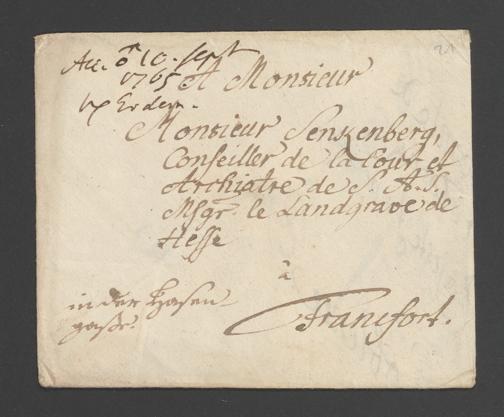 Acc. d 10. Sept
1765
A Monsieur
Monsieur Senkenberg,
Conseiller de la Cour et
Archiatre de S. A. S.
Msgr. le Landgrave de
Hesse
à
Francfort.
in der Hasen
gaße.
21